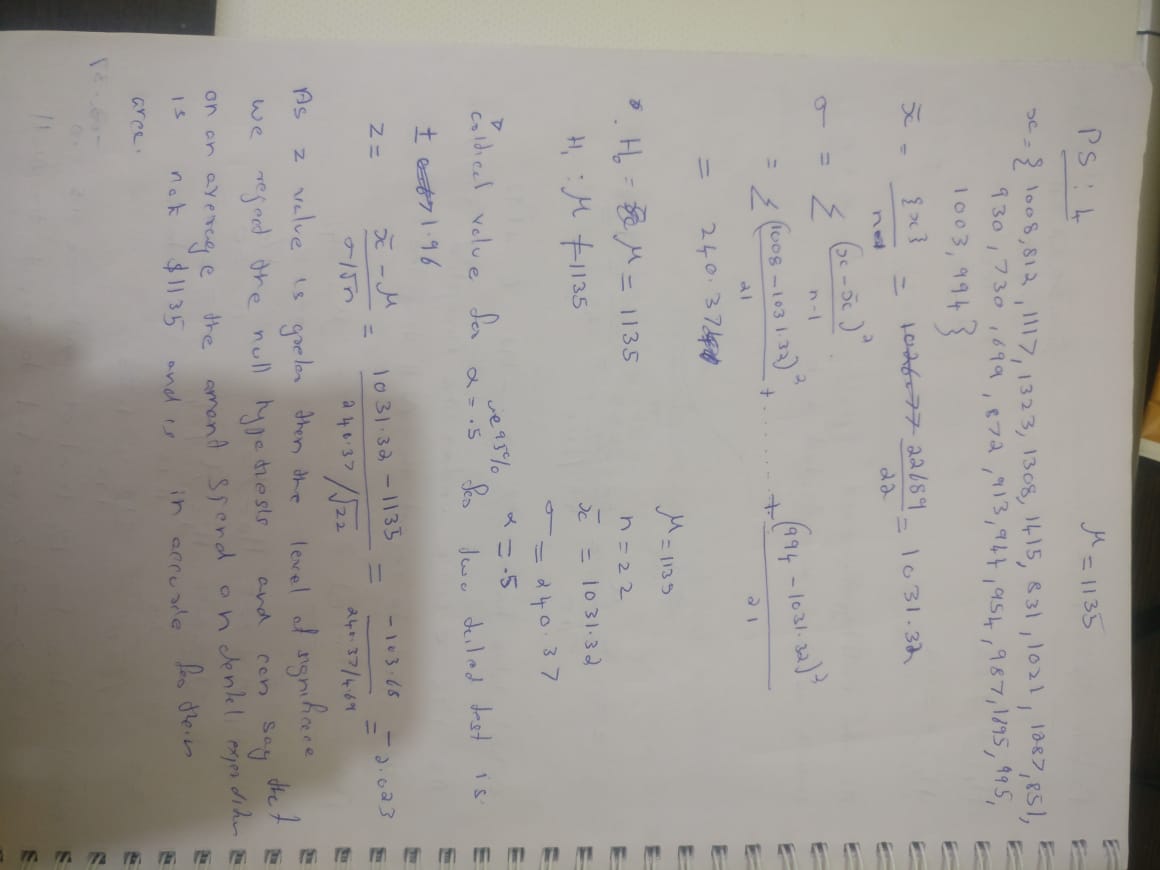 PS : 4
μ = 1135
x = { 1008, 812, 1117, 1323, 1308, 1415, 831, 1021, 1287, 851,
930, 730, 699, 872, 913, 944, 954, 987, 1695, 995,
1003, 994 }
x̄ = {x} / n = 1026.77 22689 / 22 = 1031.32
σ = Σ (x - x̄)² / n-1
= Σ (1008 - 1031.32)² / 21 + ........ + (994 - 1031.32)² / 21
= 240.37
H₀ = μ = 1135
H₁ : μ ≠ 1135
μ = 1135
n = 22
x̄ = 1031.32
σ = 240.37
α = .5
value for α = .5 ie 95% for two tailed test is
± 1.96
Z = x̄ - μ / σ/√n = 1031.32 - 1135 / 240.37/√22 = -103.68 / 240.37/4.69 = -2.023
As z value is greater then the level of significace
we reject the null hypothesis and can say that
on an average the amont spend on dentel
is not $1135 and is in accurate for their
area.